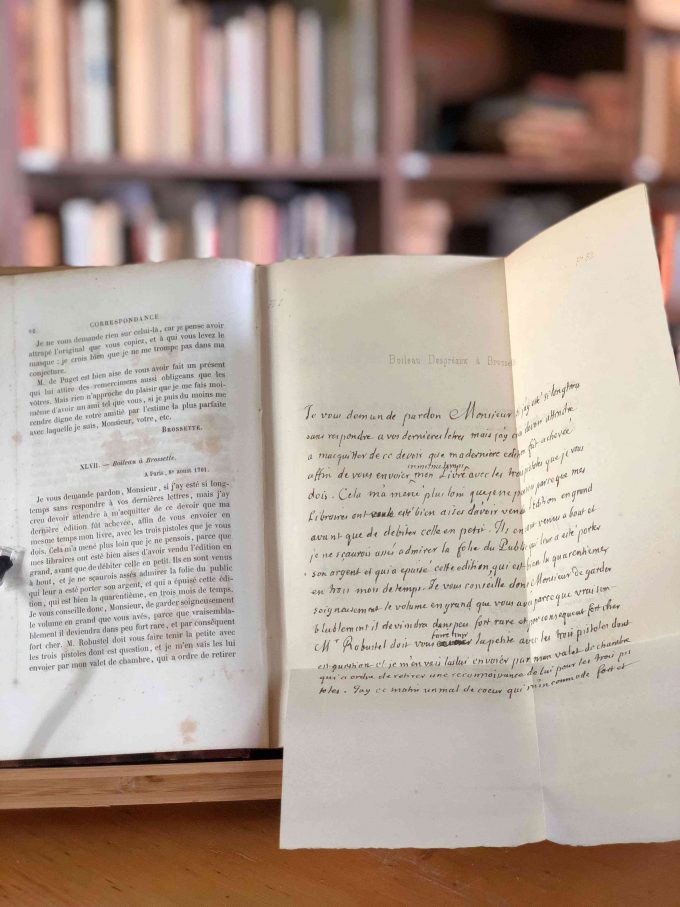 92.
CORRESPONDANCE
Je ne vous demande rien sur celui-là, car je pense avoir
attrapé l'original que vous copiez, et à qui vous levez le
masque; je crois bien que je ne me trompe pas dans ma
conjecture.
M. de Puget est bien aise de vous avoir fait un présent
qui lui attire des remercîmens aussi obligeans que les
vôtres. Mais rien n'approche du plaisir que je me fais moi-
même d'avoir un ami tel que vous, si je puis du moins me
rendre digne de votre amitié par l'estime la plus parfaite
avec laquelle je suis, Monsieur, votre, etc.
BROSSETTE.
XLVII. — Boileau à Brossette.
A Paris, 8e aoust 1701.
Je vous demande pardon, Monsieur, si j'ay esté si long-
temps sans respondre à vos dernières lettres, mais j'ay
creu devoir attendre à m'acquitter de ce devoir que ma
dernière édition fût achevée, affin de vous envoier en
mesme temps mon livre, avec les trois pistoles que je vous
dois. Cela m'a mené plus loin que je ne pensois, parce que
mes libraires ont esté bien aises d'avoir vendu l'édition en
grand, avant que de débiter celle en petit. Ils en sont venus
à bout, et je ne sçaurois assés admirer la folie du public
qui leur a esté porter son argent, et qui a épuisé cette édi-
tion, qui est bien la quarentième, en trois mois de temps.
Je vous conseille donc, Monsieur, de garder soigneusement
le volume en grand que vous avés, parce que vraisembla-
blement il deviendra dans peu fort rare, et par conséquent
fort cher. M. Robustel doit vous faire tenir la petite avec
les trois pistoles dont est question, et je m'en vais les lui
envoier par mon valet de chambre, qui a ordre de retirer
Boileau Despréaux à Brosset
Je vous demande pardon Monsieur si j'ay esté si longtems
sans respondre a vos dernieres letres mais j'ay creu devoir attendre
a m'acquitter de ce devoir que ma derniere edition fust achevée
affin de vous envoier mon Livre avec les trois pistoles que je vous
dois. Cela m'a mené plus loin que je ne pensois parce que mes
Libraires ont esté bien aises davoir vendu l'edition en grand
avant que de debiter celle en petit. Ils en sont venus a bout et
je ne sçaurois assés admirer la folie du Public qui leur a esté porter
son argent et qui a epuisé cette edition, qui est bien la quarentiéme
en trois mois de temps. Je vous conseille donc Monsieur de garder
soigneusement le volume en grand que vous avés parce que vraisem
blablement il deviendra dans peu fort rare et par consequent fort cher
Mr Robustel doit vous faire tenir la petite avec les trois pistoles dont
est question et je m'en vais les lui envoier par mon valet de chambre
qui a ordre de retirer une reconnoissance de lui pour les trois pis
toles. J'ay ce matin un mal de coeur qui m'incommode fort et